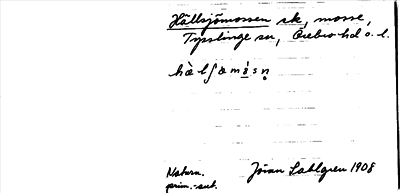 Hällsjömossen sk, mosse,
Tysslinge sn, Örebro hd o. l.
Naturn.
prim.-sub. Jöran Sahlgren 1908